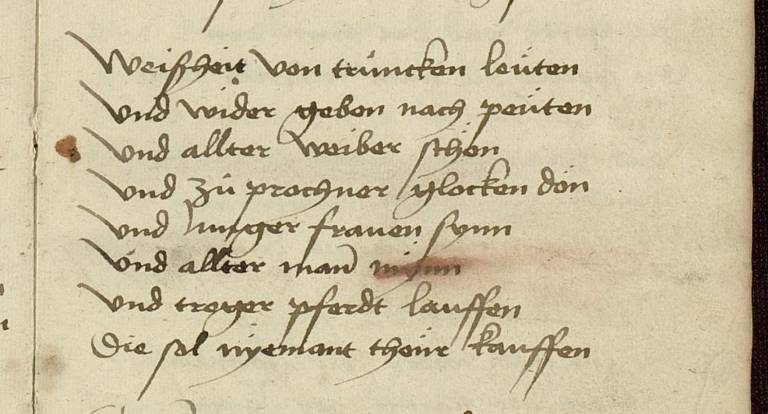 Weißheit von trüncken leüten
vnd wider geben nach peüten
vnd allter weiber schön
vnd zü prochner glocken dön
vnd Junger frauen synn
vnd allter man mynn
vnd treger pferdt lauffen
Die sol nyemant theür kauffen